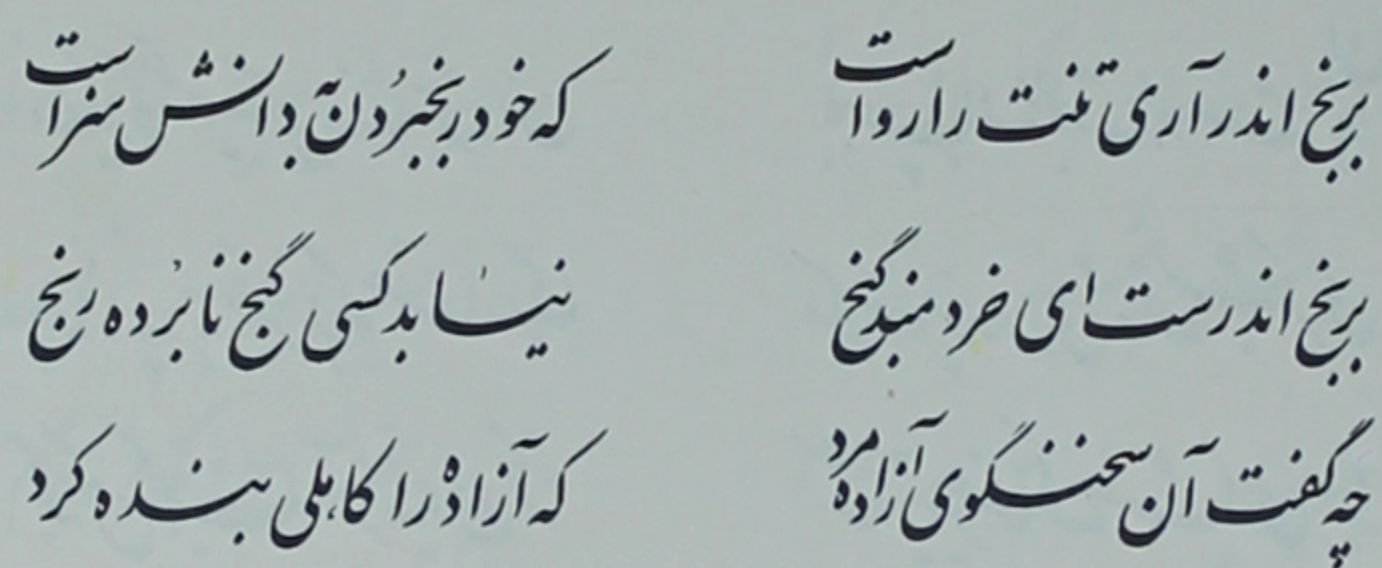 برنج اندر آری تنت را رواست که خود رنج بردن به دانش سزاست
برنج اندرست ای خردمند گنج نیابد کسی گنج نابرده رنج
چه گفت آن سخنگوی آزاده مرد که آزاده را کاهلی بنده کرد